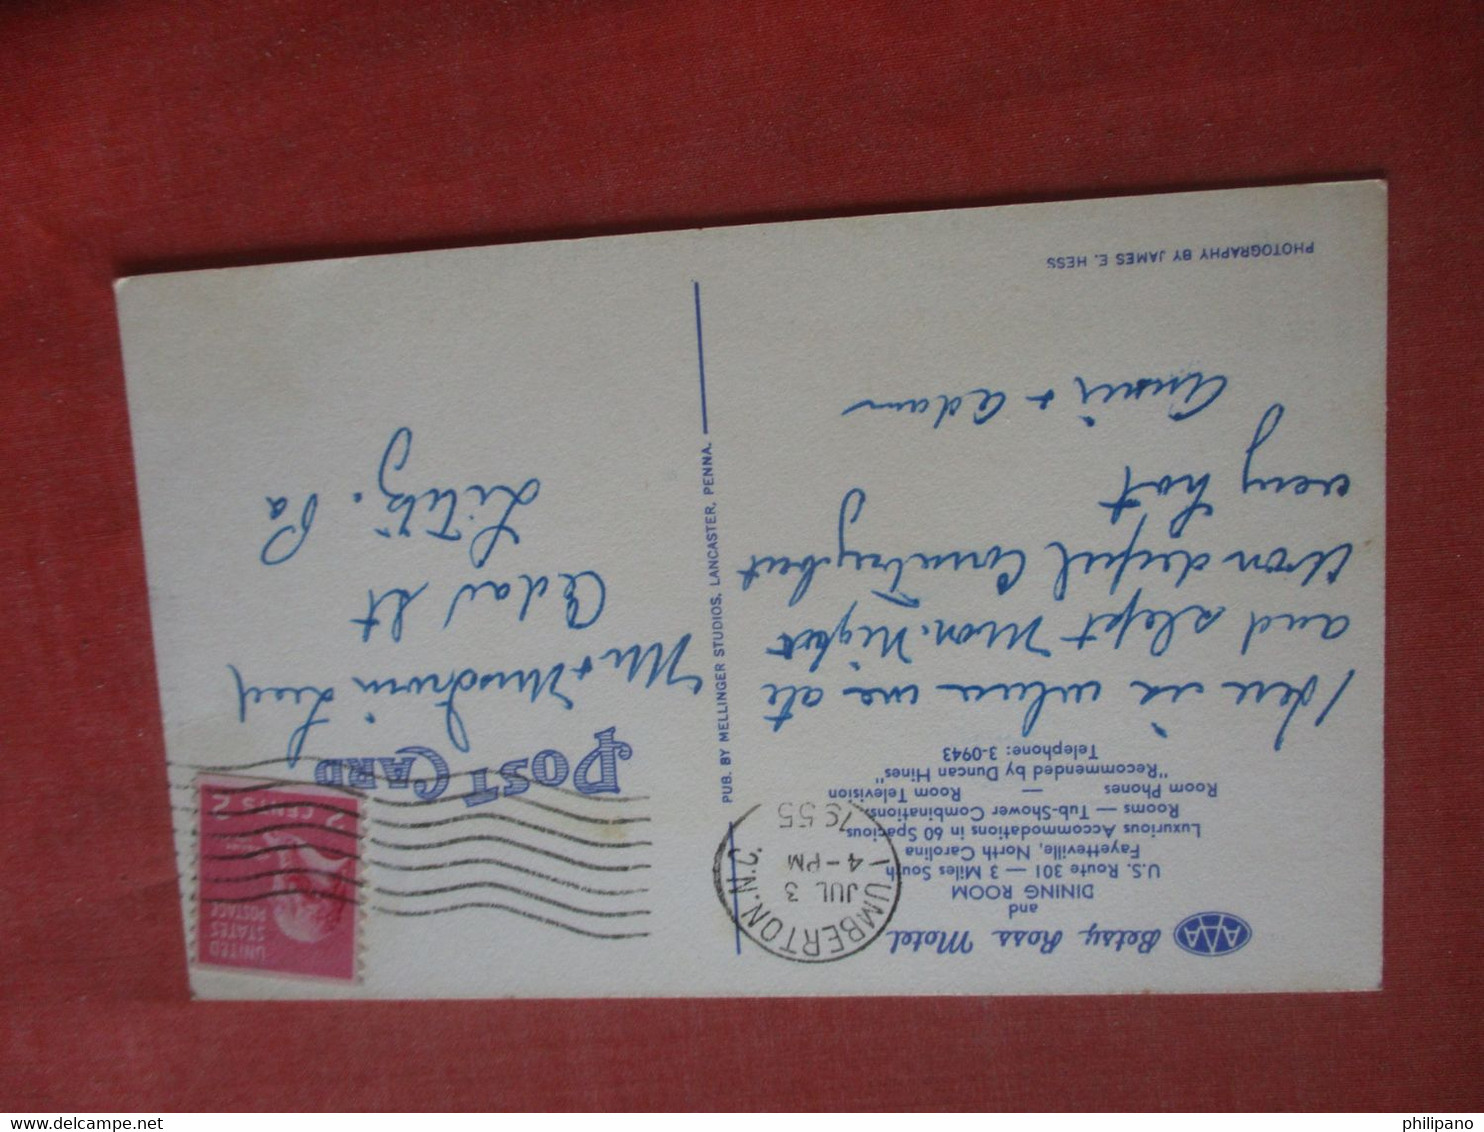 AAA
Betsy Ross Motel
and
DINING ROOM
U.S. Route 301 — 3 Miles South
Fayetteville, North Carolina
Luxurious Accommodations in 60 Spacious
Rooms — Tub-Shower Combinations
Room Phones — Room Television
"Recommended by Duncan Hines"
Telephone: 3-0943
Here is where we ate
and slept Mon. Night
Wonderful Country but
very hot
Annie + Adam
PHOTOGRAPHY BY JAMES E. HESS
PUB. BY MELLINGER STUDIOS, LANCASTER, PENNA.
LUMBERTON, N.C.
JUL 3
4-PM
1955
POST CARD
UNITED
STATES
POSTAGE
2 CENTS 2
Mr + Mrs
Cedar St
Lititz. Pa
philipano